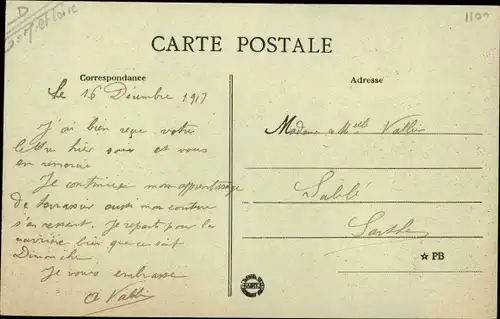 D
1100
CARTE POSTALE
Correspondance
Adresse
Le 16 Décembre 1917
J'ai bien reçu votre
lettre hier soir et vous
en remercie
Je continue mon apprentissage
de terrassier aussi mon
s'en ressent. Je repart pour la
bien que ce soit
Dimanche
Je vous embrasse
Vallin
Madame & Melle Vallin
Sablé
Sarthe
★ PB